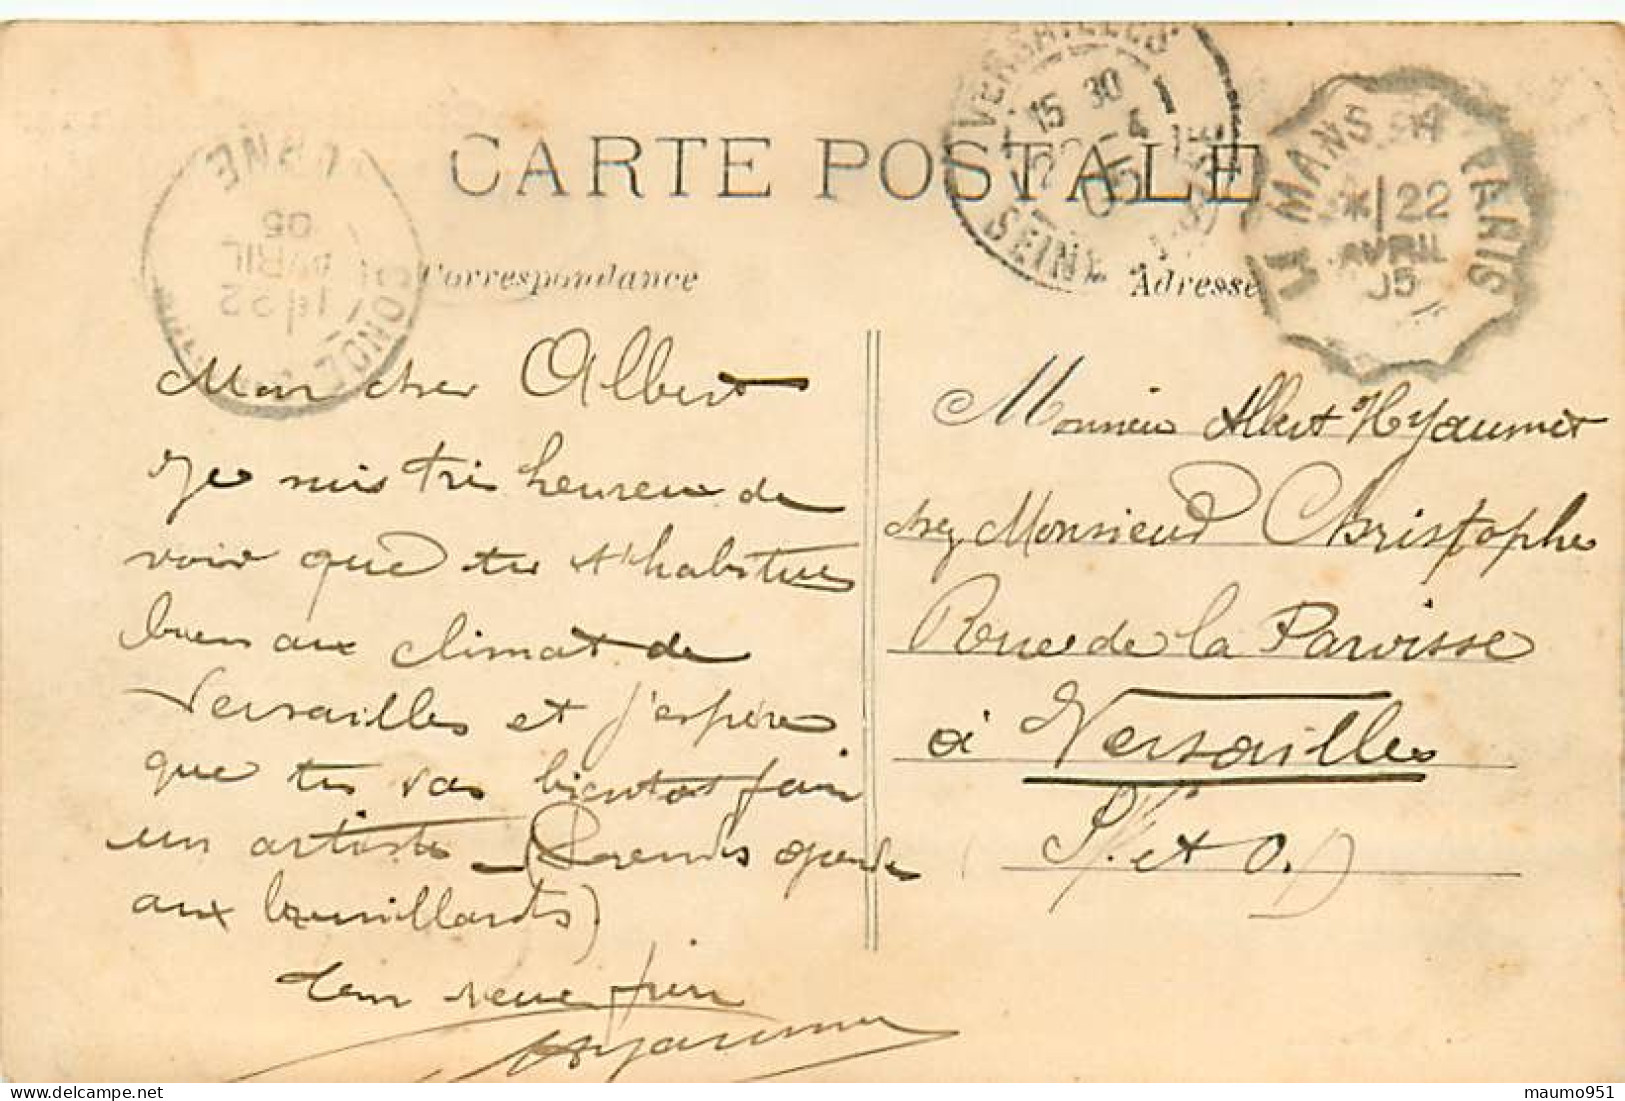 CARTE POSTALE
Correspondance
Adresse
VERSAILLES
15 30
22 -4
05
SEINE
LE MANS A PARIS
* 22
AVRIL
05
22
AVRIL
05
ORNE
Mon cher Albert
Je suis très heureux de
voir que tu t'habitues
bien aux climat de
Versailles et j'espère
que tu vas bientot fair
un artiste (Prends garde
aux brouillards)
Ton frère
Monsieur Albert
chez Monsieur Christophe
Rue de la Paroisse
à Versailles
S. et O.
maumo951